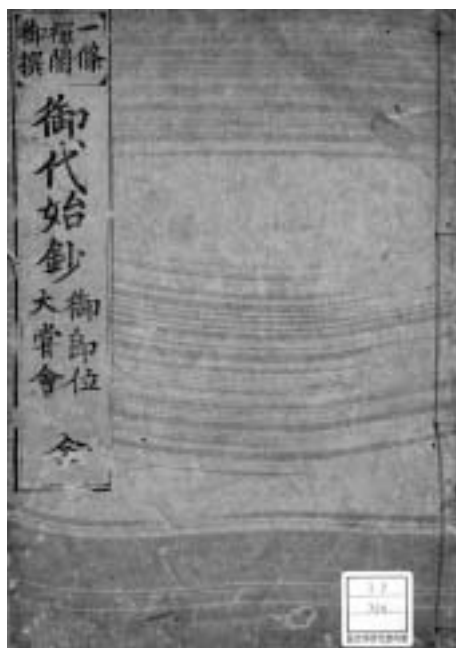 一條
禅閤
御撰
御代始鈔
御即位
大嘗會
全